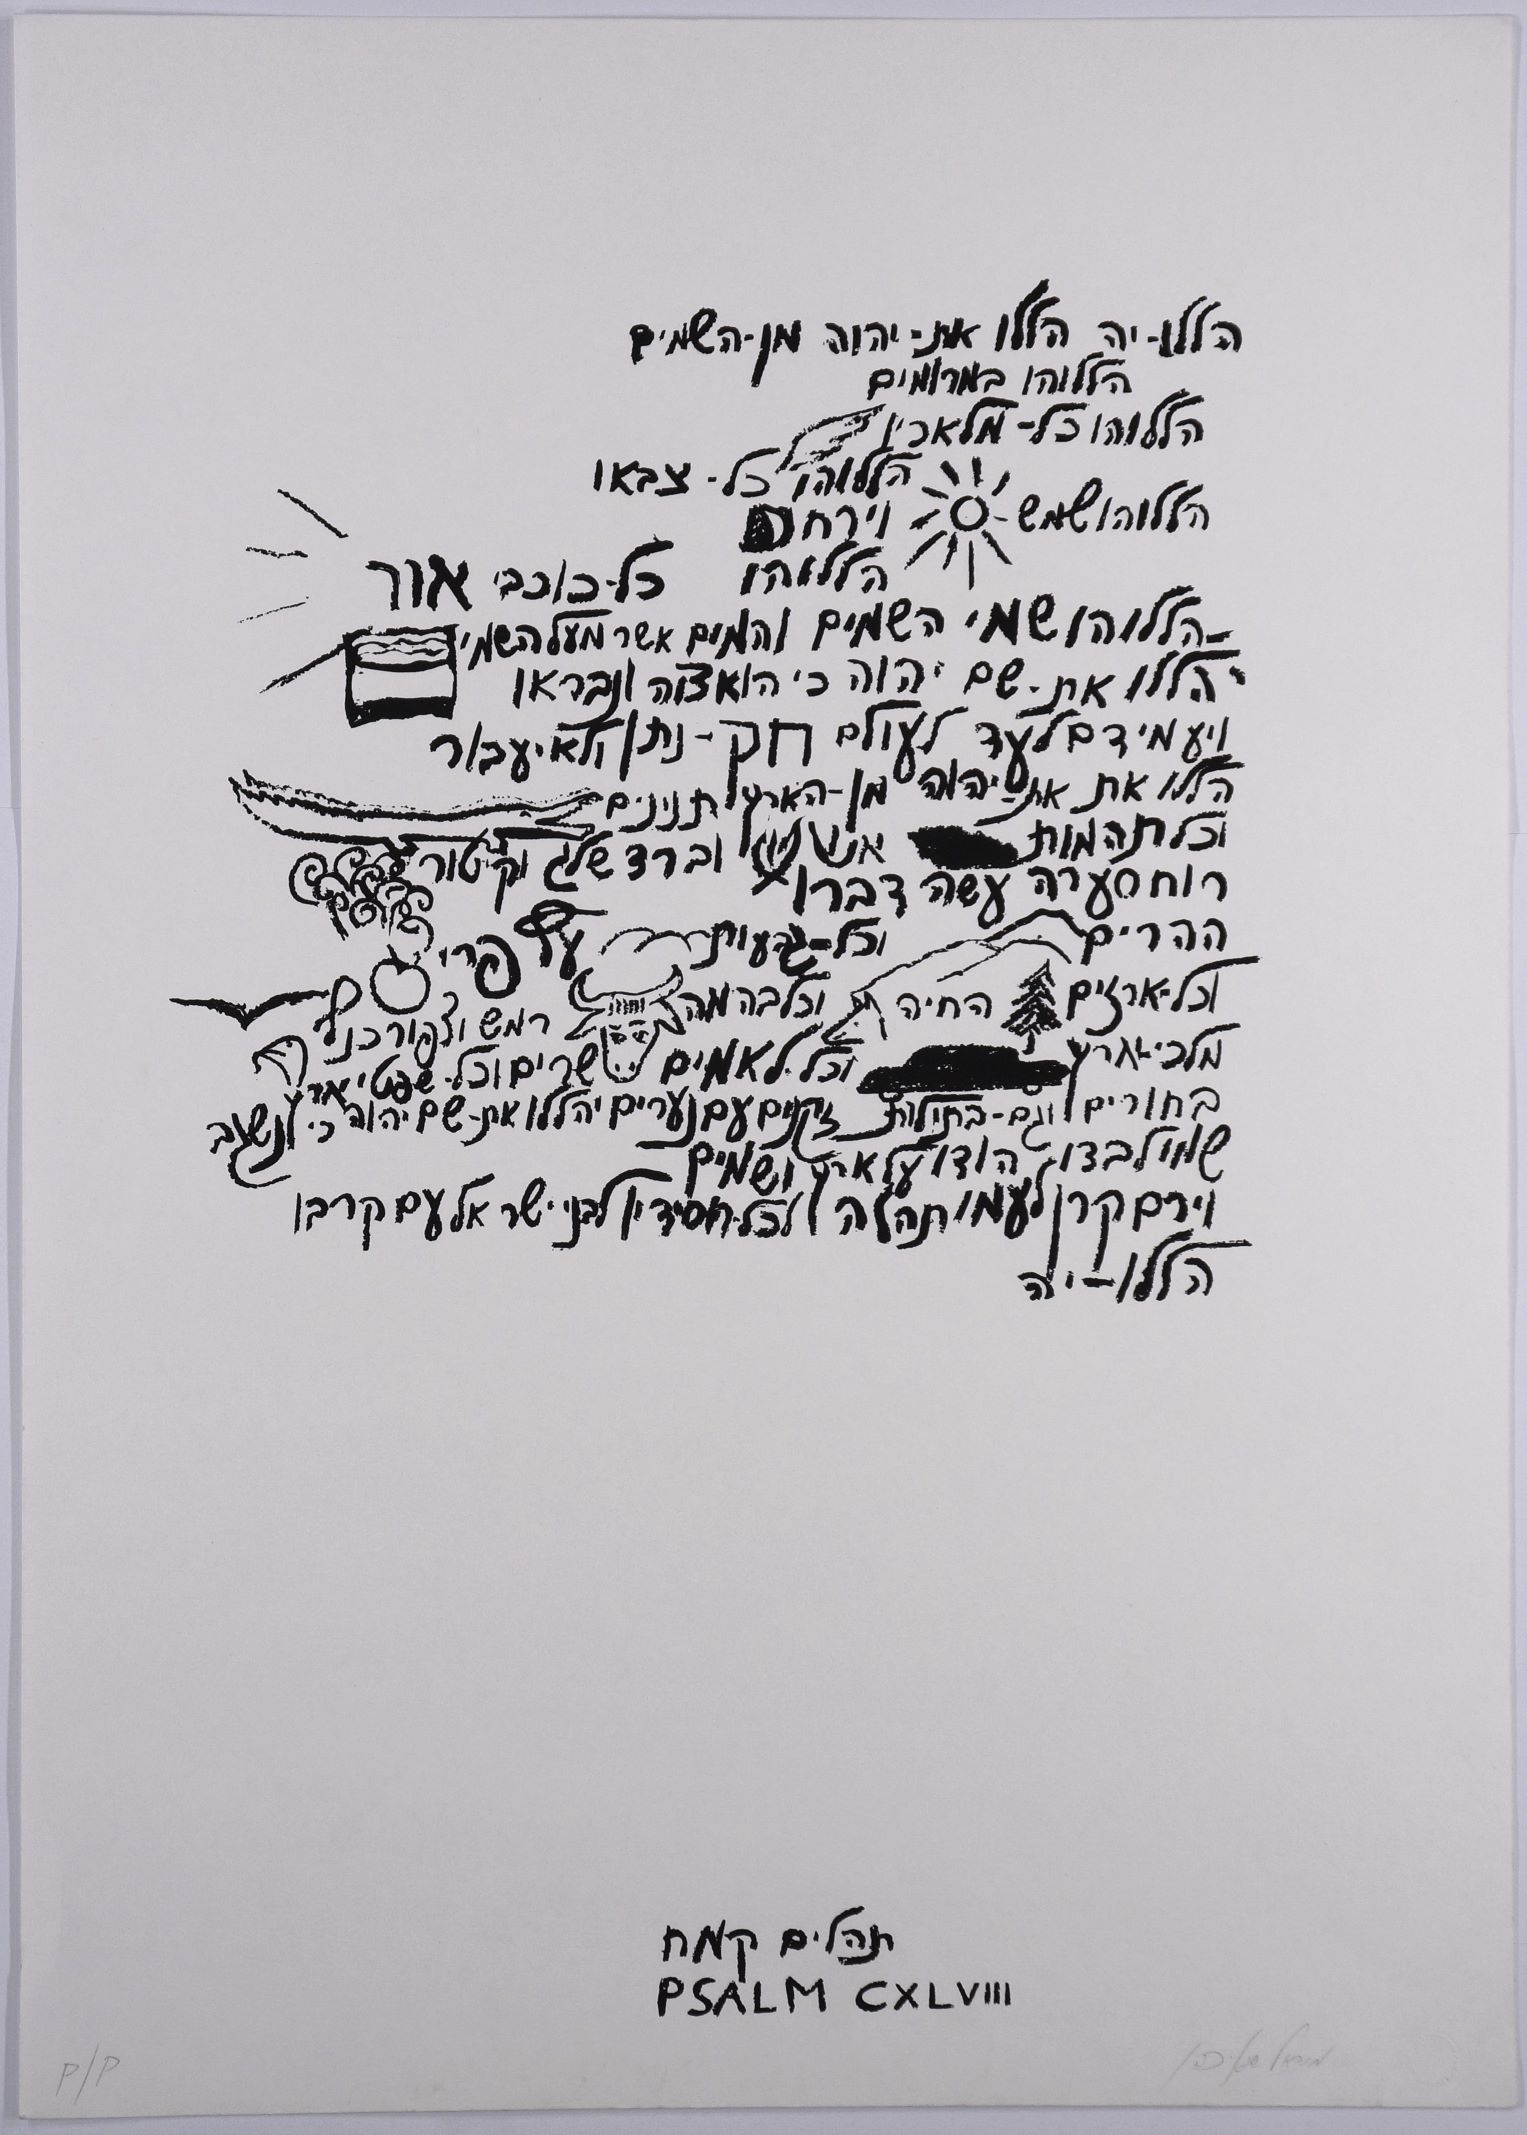 הללו-יה הללו את-יהוה מן-השמים
הללוהו במרומים
הללוהו כל-מלאכיו
הללוהו כל-צבאו
הללוהו שמש וירח
הללוהו כל-כוכבי אור
הללוהו שמי השמים והמים אשר מעל השמי
הללו את-שם יהוה כי הוא צוה ונבראו
ויעמידם לעד לעולם חק-נתן ולא יעבור
הללו את את-יהוה מן-הארץ תנינים
וכל תהמות אש וברד שלג וקיטור
רוח סערה עשה דברו
ההרים וכל-גבעות עץ פרי
וכל-ארזים החיה וכל בהמה רמש וצפור כנף
מלכי-ארץ וכל-לאמים שרים וכל-שפטי ארץ
בחורים וגם-בתולות זקנים עם נערים יהללו את-שם יהוה כי נשגב
שמו לבדו הודו על ארץ ושמים
וירם קרן לעמו תהלה לכל חסידיו לבני ישראל עם קרבו
הללו-יה
תהלים קמח
PSALM CXLVIII
P/P